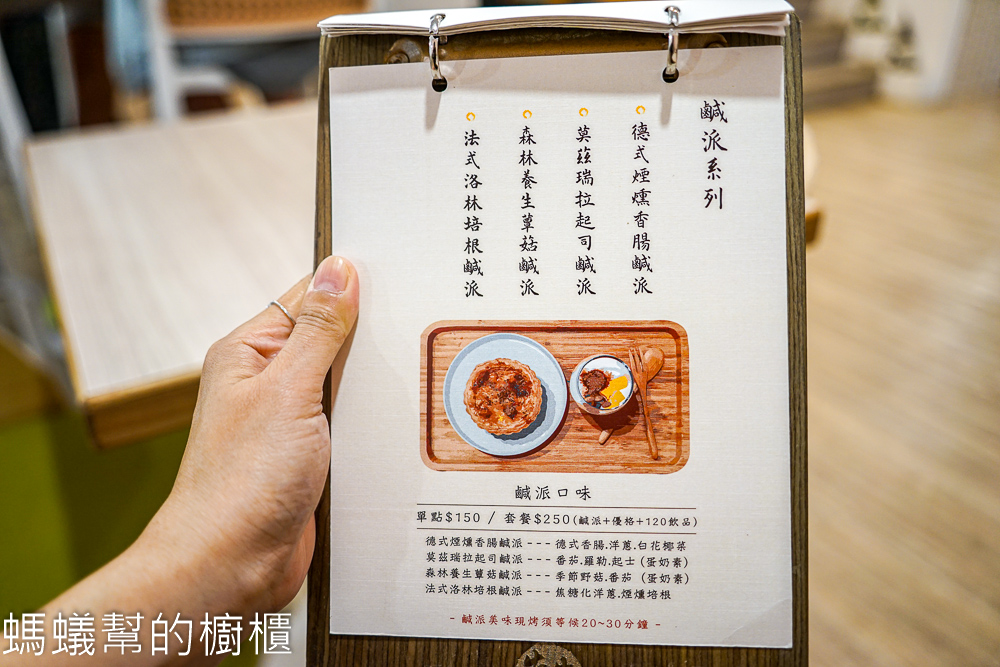 鹹派系列
德式煙燻香腸鹹派
莫茲瑞拉起司鹹派
森林養生蕈菇鹹派
法式洛林培根鹹派
鹹派口味
單點$150 / 套餐$250(鹹派+優格+120飲品)
德式煙燻香腸鹹派---德式香腸.洋蔥.白花椰菜
莫茲瑞拉起司鹹派---番茄.羅勒.起士 (蛋奶素)
森林養生蕈菇鹹派---季節野菇.番茄 (蛋奶素)
法式洛林培根鹹派---焦糖化洋蔥.煙燻培根
- 鹹派美味現烤須等候20~30分鐘 -
螞蟻幫的櫥櫃